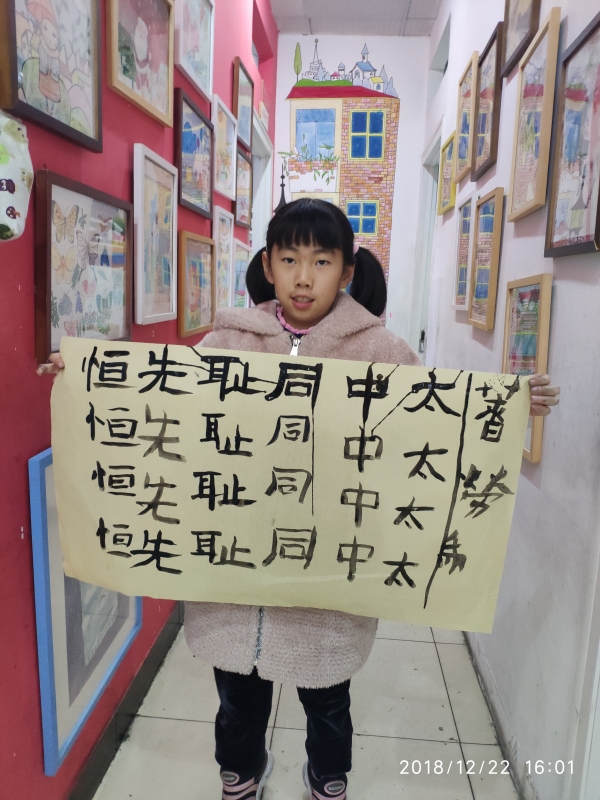 勞
太太太太
中中中中
同同同同
耻耻耻耻
先先先先
恒恒恒恒
2018/12/22 16:01